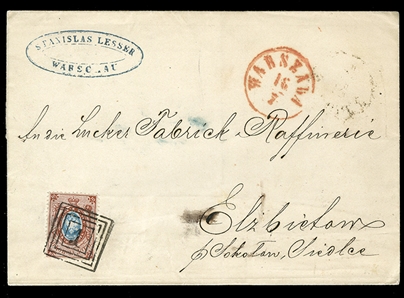 STANISLAS LESSER
WARSCHAU
WARSZAWA
16
An die Zucker Fabrick & Raffinerie
Elzbietow
p Sokołow, Siedlce